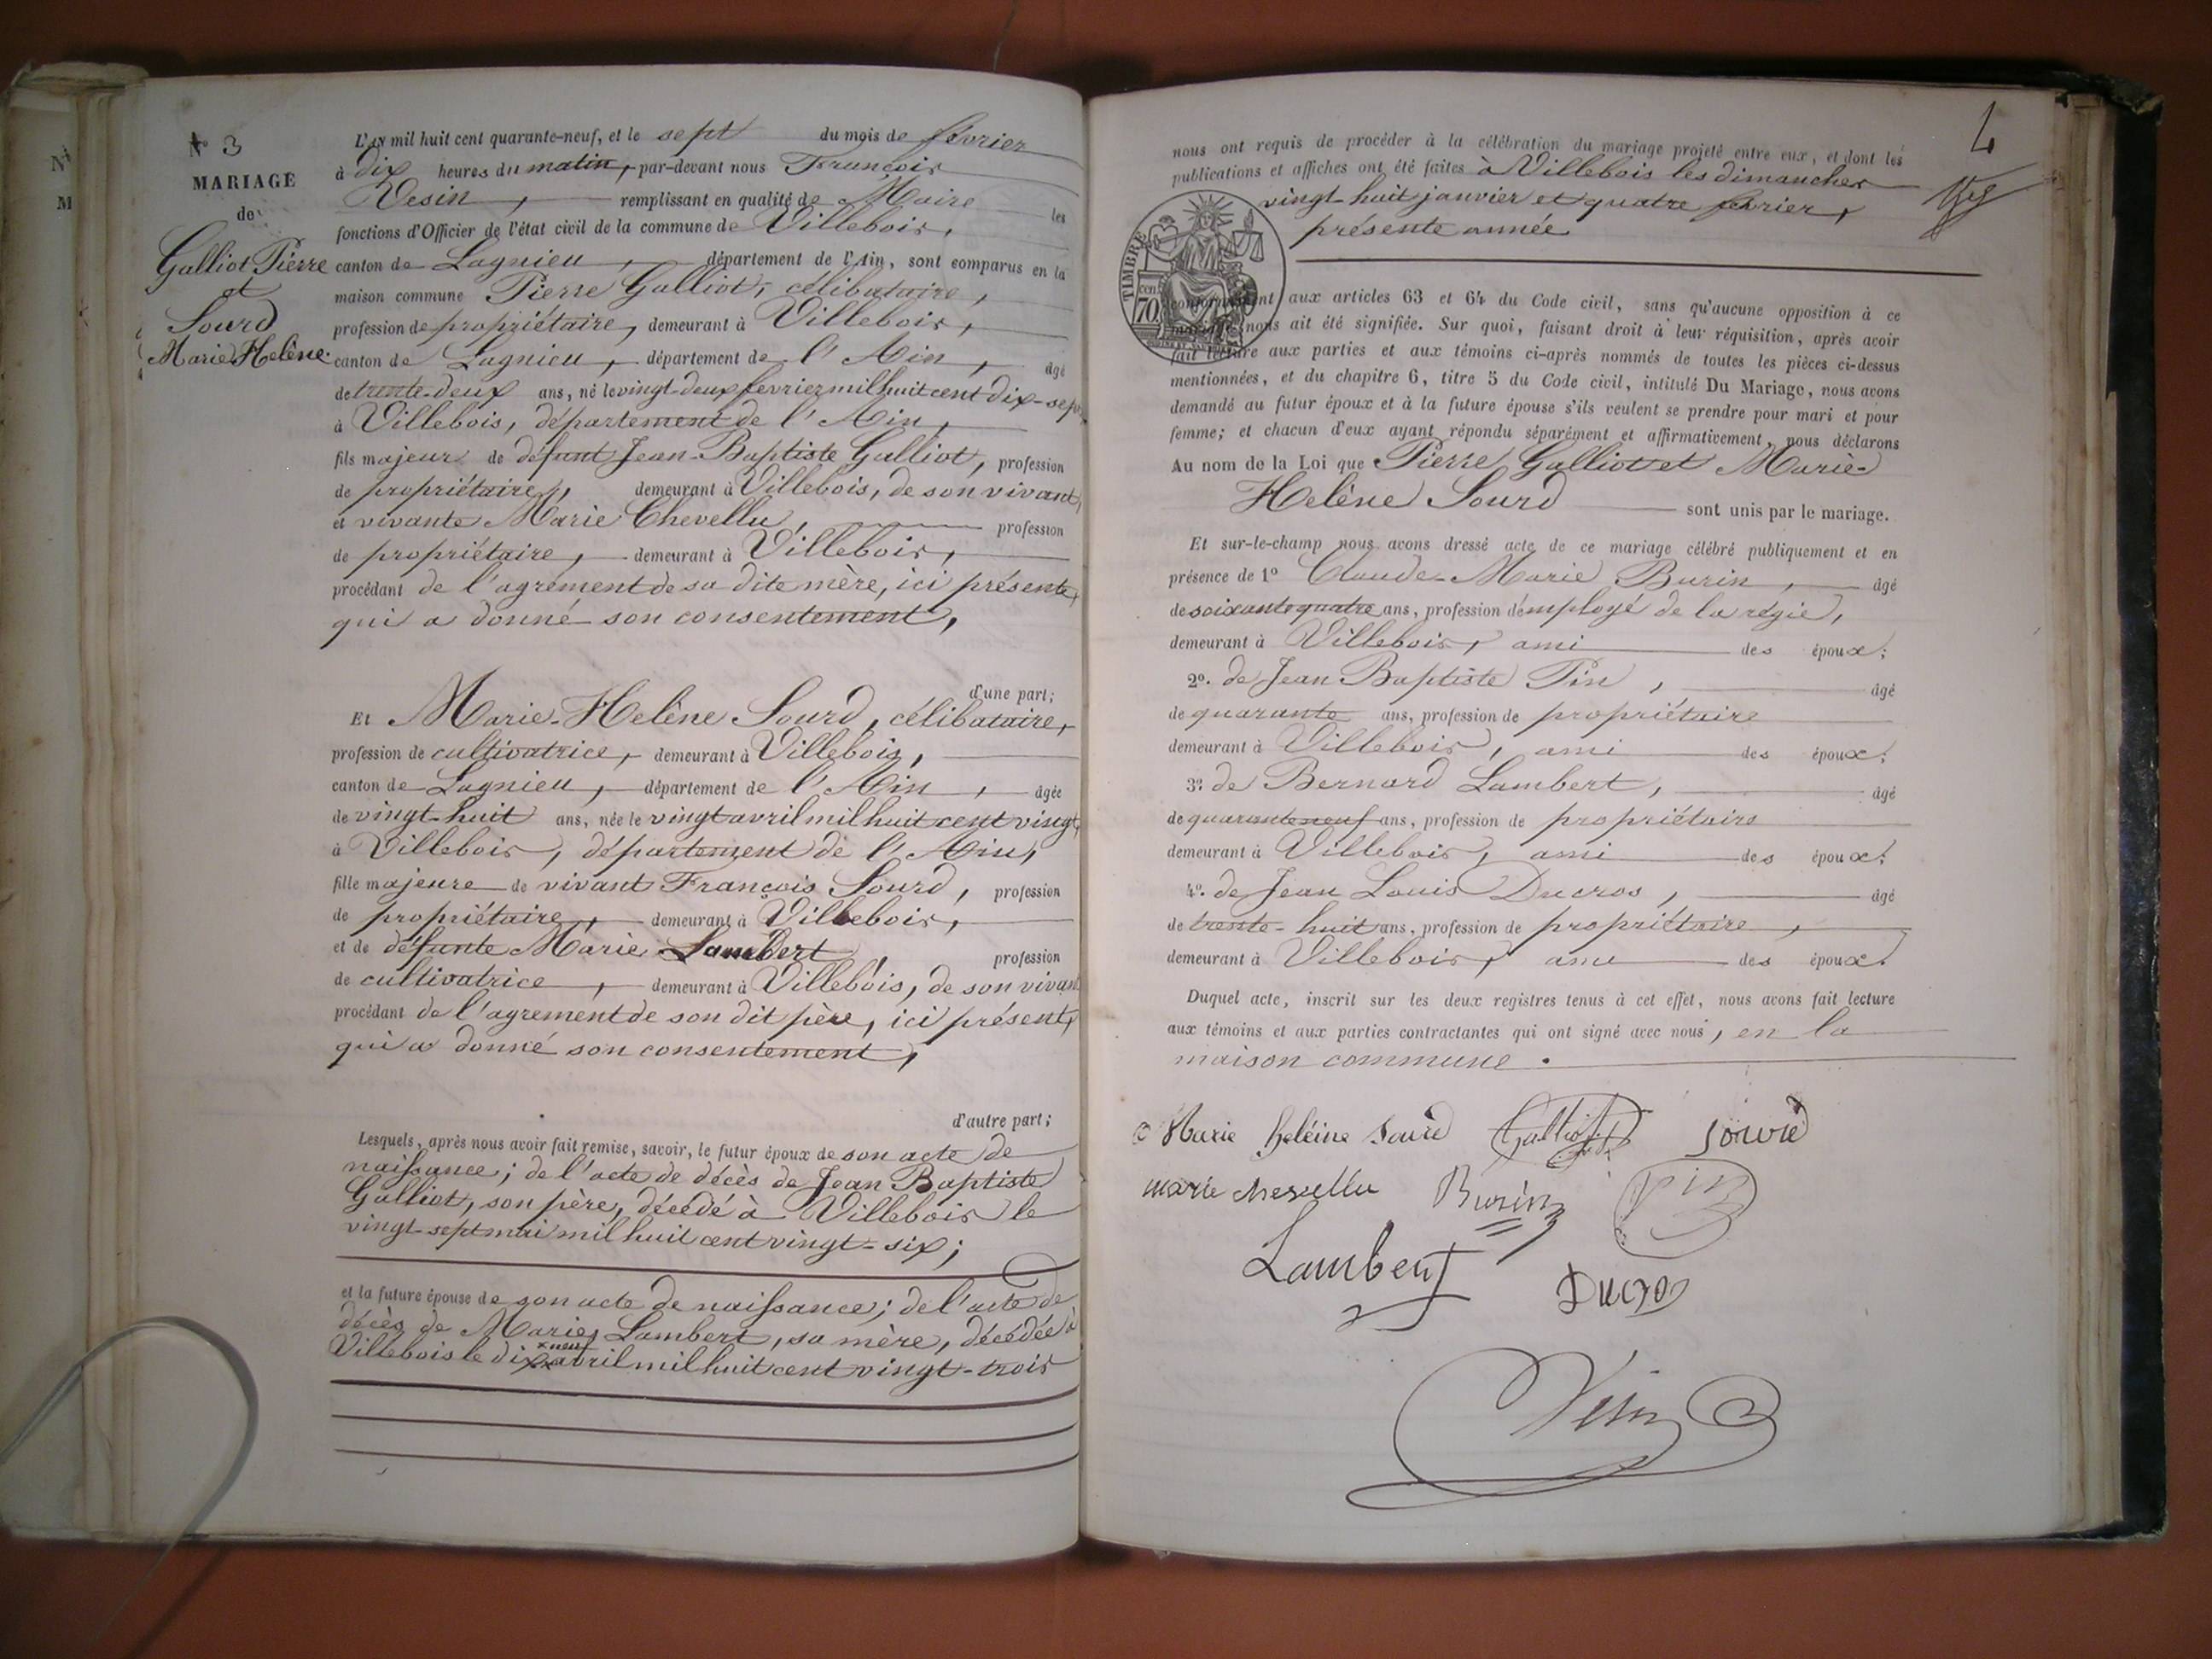 N° 3
MARIAGE
de
Galliot Pierre
et
Sourd
Marie Helène.
L'AN mil huit cent quarante-neuf, et le sept du mois de février
à dix heures du matin, par-devant nous François
Vesin, remplissant en qualité de Maire les
fonctions d'Officier de l'état civil de la commune de Villebois,
canton de Lagnieu, département de l'Ain, sont comparus en la
maison commune Pierre Galliot, célibataire,
profession de propriétaire, demeurant à Villebois,
canton de Lagnieu, département de l'Ain, âgé
de trente-deux ans, né le vingt-deux fevrier mil huit cent dix-sept
à Villebois, département de l'Ain,
fils majeur de défunt Jean-Baptiste Galliot, profession
de propriétaire, demeurant à Villebois, de son vivant,
et vivante Marie Chevellu, profession
de propriétaire, demeurant à Villebois,
procédant de l'agrément de sa dite mère, ici présente,
qui a donné son consentement,
d'une part;
Et Marie-Helène Sourd, célibataire,
profession de cultivatrice, demeurant à Villebois,
canton de Lagnieu, département de l'Ain, âgée
de vingt-huit ans, née le vingt avril mil huit cent vingt,
à Villebois, département de l'Ain,
fille majeure de vivant François Sourd, profession
de propriétaire, demeurant à Villebois,
et de défunte Marie Lambert, profession
de cultivatrice, demeurant à Villebois, de son vivant
procédant de l'agrement de son dit père, ici présent,
qui a donné son consentement,
d'autre part;
Lesquels, après nous avoir fait remise, savoir, le futur époux de son acte de
naissance; de l'acte de décès de Jean Baptiste
Galliot, son père, décédé à Villebois le
vingt-sept mai mil huit cent vingt-six;
et la future épouse de son acte de naissance; de l'acte de
décès de Marie Lambert, sa mère, décédée à
Villebois le dix neuf avril mil huit cent vingt-trois
4
nous ont requis de procéder à la célébration du mariage projeté entre eux, et dont les
publications et affiches ont été faites à Villebois les dimanches
vingt-huit janvier et quatre février,
présente année
TIMBRE
70
conformément aux articles 63 et 64 du Code civil, sans qu'aucune opposition à ce
mariage nous ait été signifiée. Sur quoi, faisant droit à leur réquisition, après avoir
fait lecture aux parties et aux témoins ci-après nommés de toutes les pièces ci-dessus
mentionnées, et du chapitre 6, titre 5 du Code civil, intitulé Du Mariage, nous avons
demandé au futur époux et à la future épouse s'ils veulent se prendre pour mari et pour
femme; et chacun d'eux ayant répondu séparément et affirmativement, nous déclarons
Au nom de la Loi que Pierre Galliot et Marie-
Helène Sourd sont unis par le mariage.
Et sur-le-champ nous avons dressé acte de ce mariage célébré publiquement et en
présence de 1° Claude-Marie Burin, âgé
de soixante quatre ans, profession d'employé de la régie,
demeurant à Villebois, ami des époux;
2°. de Jean Baptiste Pin, âgé
de quarante ans, profession de propriétaire
demeurant à Villebois, ami des époux;
3°. de Bernard Lambert, âgé
de quarante neuf ans, profession de propriétaire
demeurant à Villebois, ami des époux;
4°. de Jean Louis Ducros, âgé
de trente-huit ans, profession de propriétaire,
demeurant à Villebois, ami des époux.
Duquel acte, inscrit sur les deux registres tenus à cet effet, nous avons fait lecture
aux témoins et aux parties contractantes qui ont signé avec nous, en la
maison commune.
Marie heléine Sourd Galliot Sourd
marie chevellu Burin Pin
Lambert Ducros
Vesin